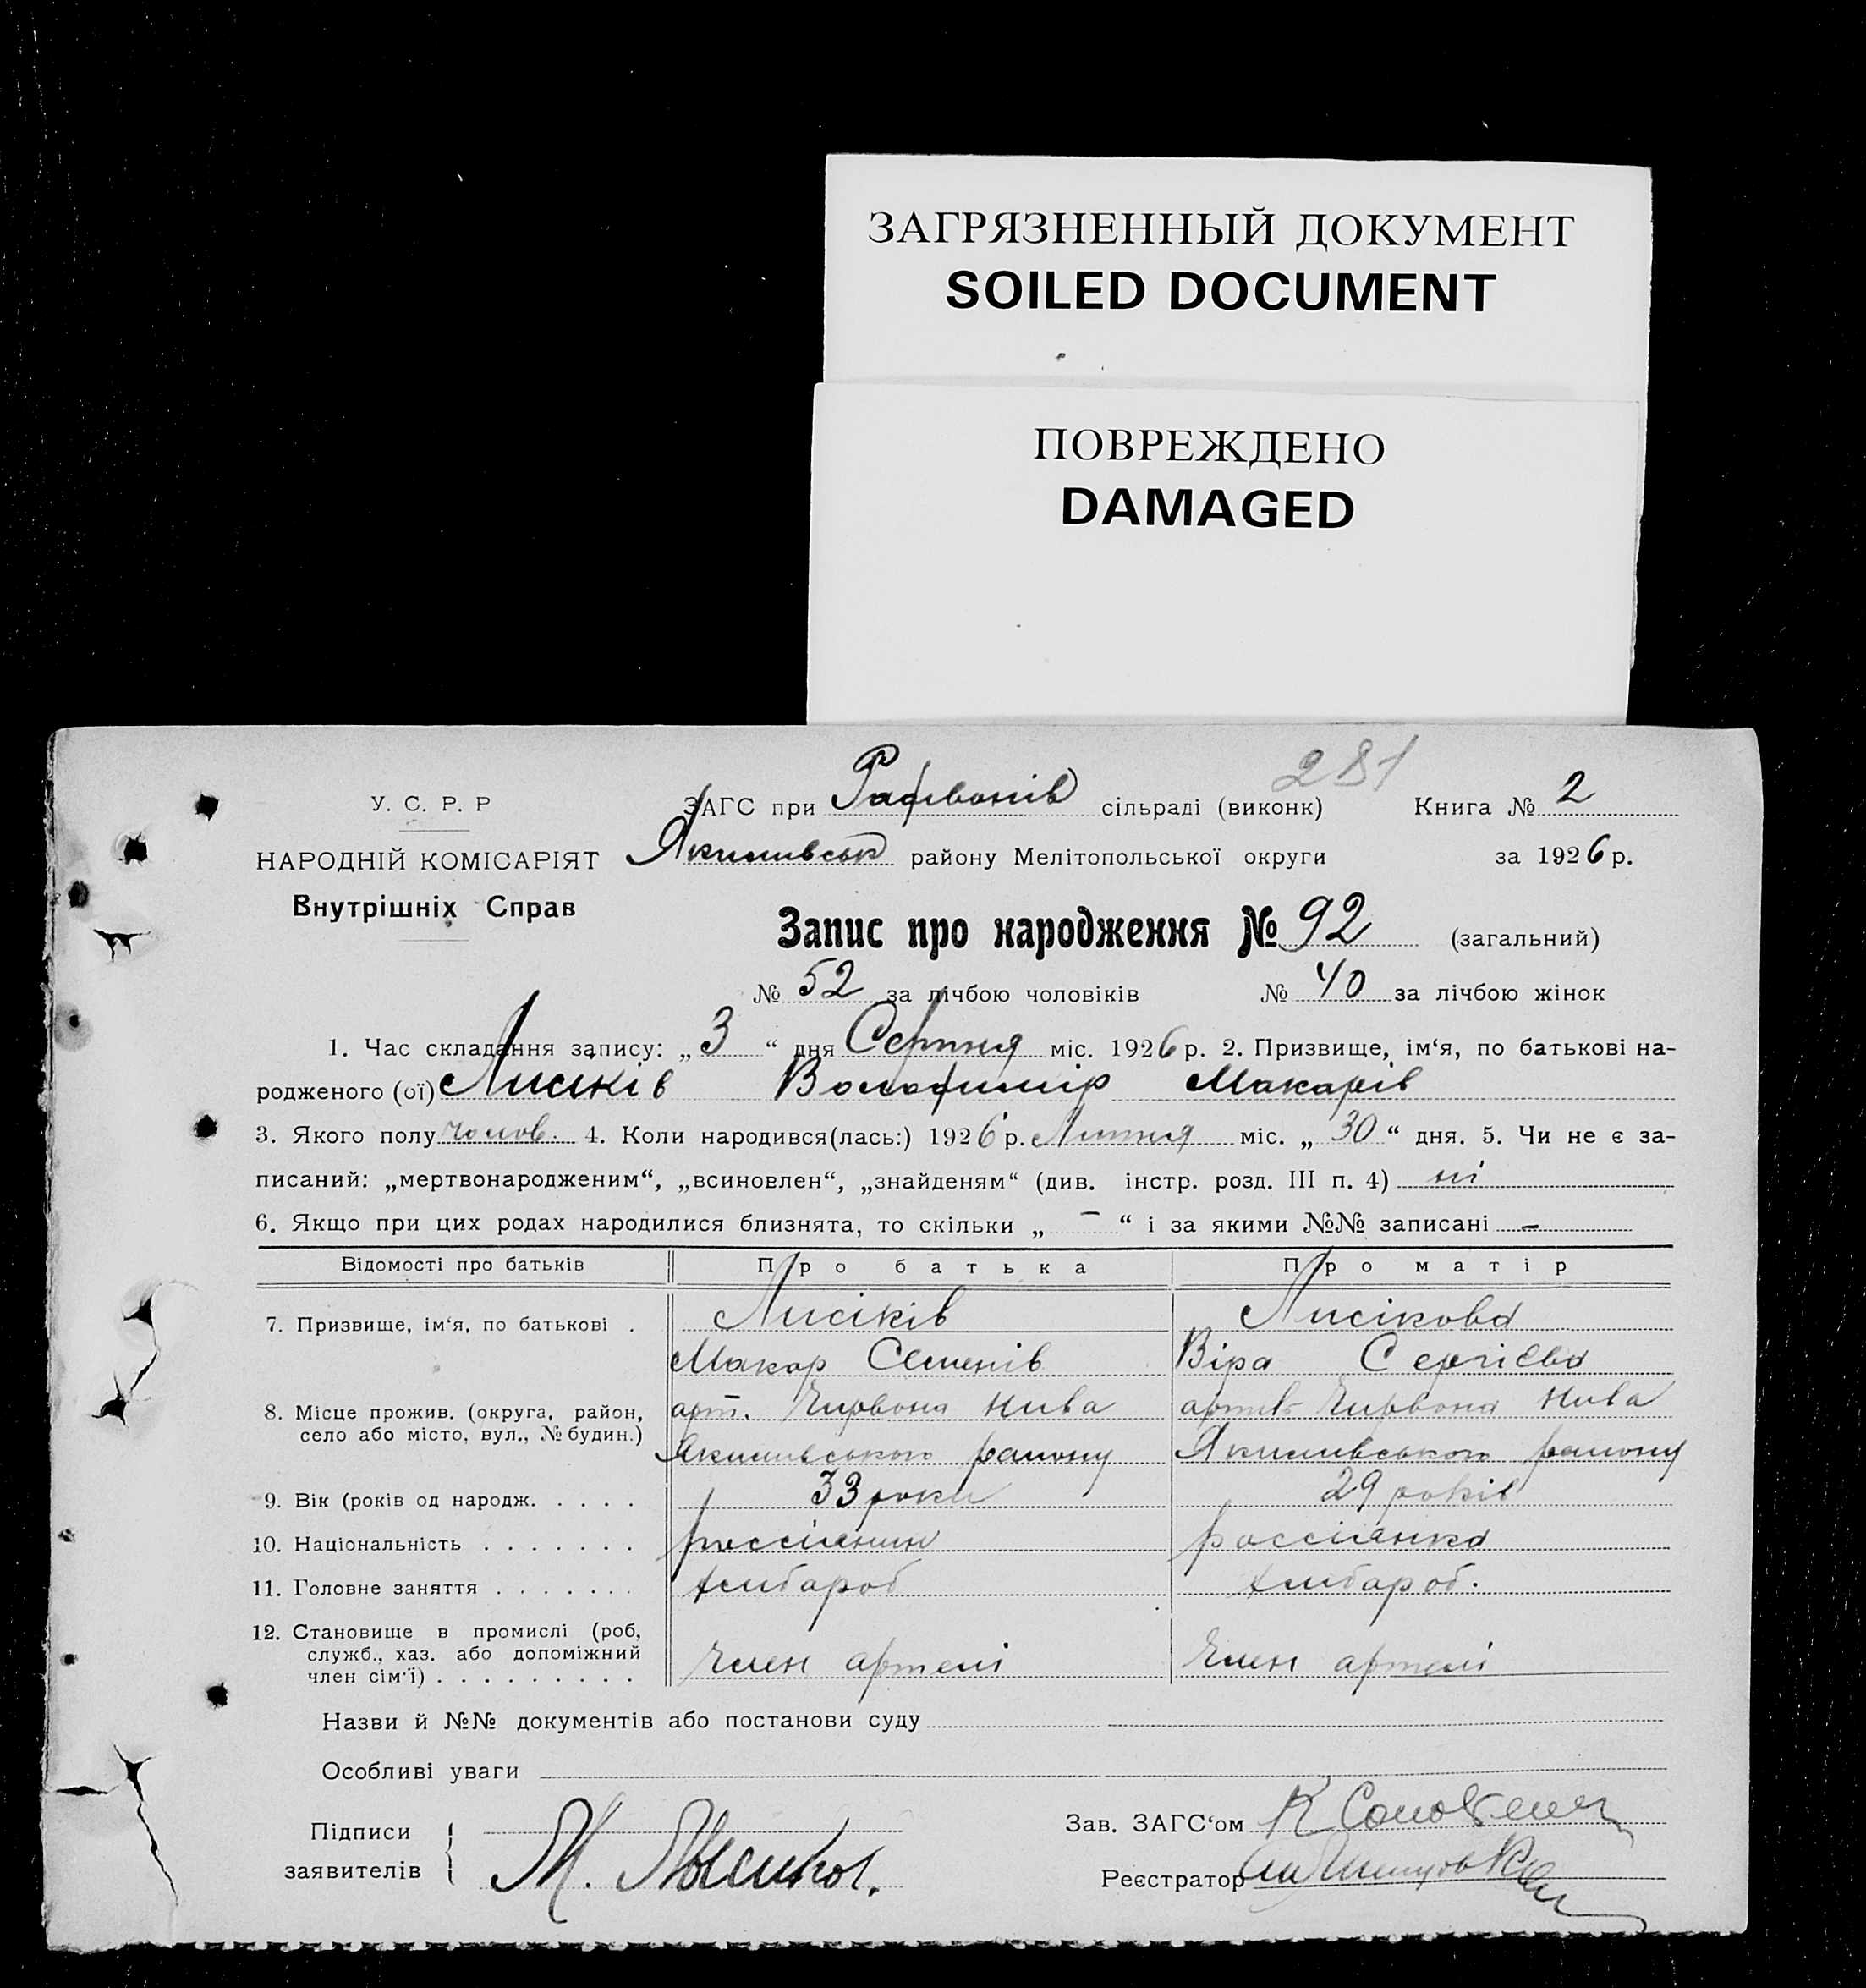 ЗАГРЯЗНЕННЫЙ ДОКУМЕНТ
SOILED DOCUMENT
ПОВРЕЖДЕНО
DAMAGED
281
У. С. Р. Р
НАРОДНІЙ КОМІСАРІЯТ
Внутрішніх Справ
ЗАГС при сільраді (виконк) Книга № 2
Якимівськ району Мелітопольської округи за 1926 р.
Запис про народження № 92 (загальний)
№ 52 за лічбою чоловіків № 40 за лічбою жінок
1. Час складання запису: „3“ дня Серпня міс. 1926 р. 2. Призвище, ім‘я, по батькові на-
родженого (ої) Лисіків Володимір Макарів
3. Якого полу чолов. 4. Коли народився(лась:) 1926 р. Липня міс. „30“ дня. 5. Чи не є за-
писаний: „мертвонародженим“, „всиновлен“, „знайденям“ (див. інстр. розд. III п. 4) ні
6. Якщо при цих родах народилися близнята, то скільки „ – “ і за якими №№ записані –
Відомості про батьків Про батька Про матір
7. Призвище, ім‘я, по батькові . Лисіків Лисікова
Макар Семенів Віра Сергієва
8. Місце прожив. (округа, район, село або місто, вул., № будин.) арт. Червона Нива артель Червона Нива
Якимівського району Якимівського району
9. Вік (років од народж. . . . . 33 роки 29 років
10. Національність . . . . . . . россіянин россіянка
11. Головне заняття . . . . . . . хлібароб хлібароб.
12. Становище в промислі (роб, служб., хаз. або допоміжний член сім‘ї) . . . . . . . . . член артелі член артелі
Назви й №№ документів або постанови суду
Особливі уваги
Підписи заявителів М. Лысиков.
Зав. ЗАГС‘ом К
Реєстратор